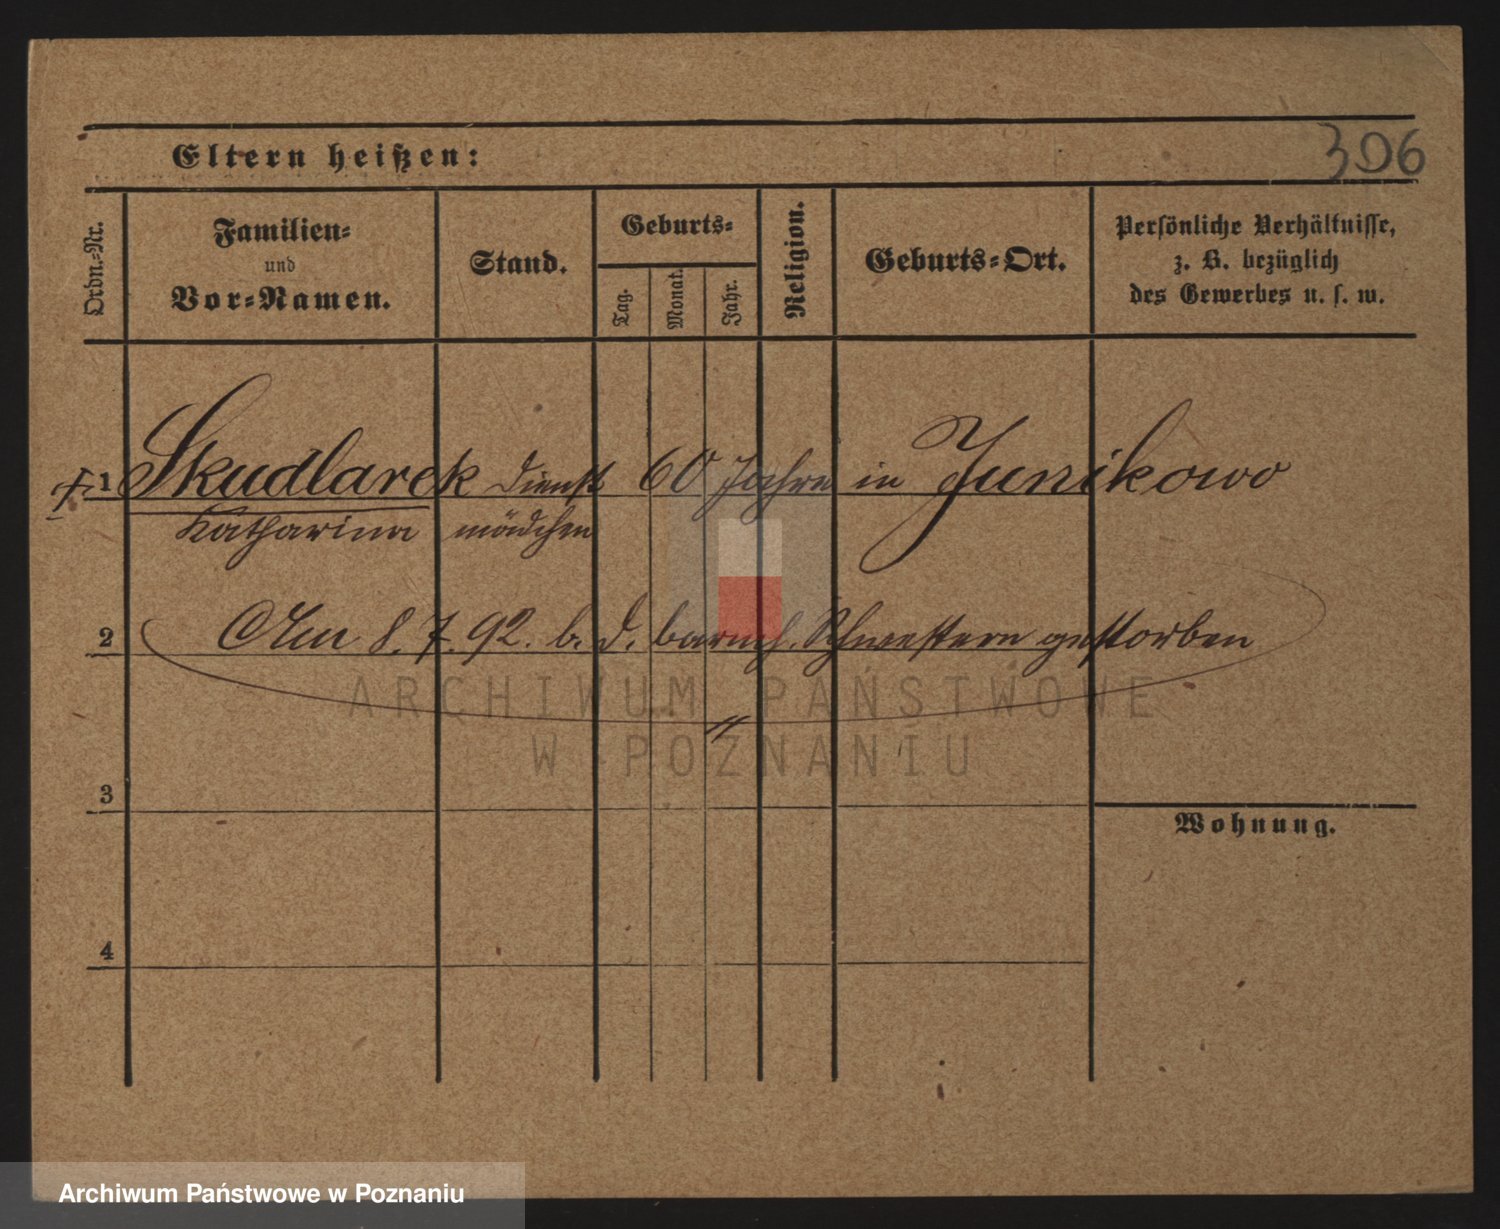 306
Eltern heißen:
Ordn.-Nr.
Familien-
und
Vor-Namen.
Stand.
Geburts-
Tag.
Monat.
Jahr.
Religion.
Geburts-Ort.
Persönliche Verhältnisse,
z. B. bezüglich
des Gewerbes u. s. w.
1 Skudlarek Dienst 60 Jahre in Junikowo
Katharina mädchen
2 Am 8.7.92. b. d. barmh. Schwestern gestorben
ARCHIWUM PAŃSTWOWE
W POZNANIU
3
Wohnung.
4
Archiwum Państwowe w Poznaniu